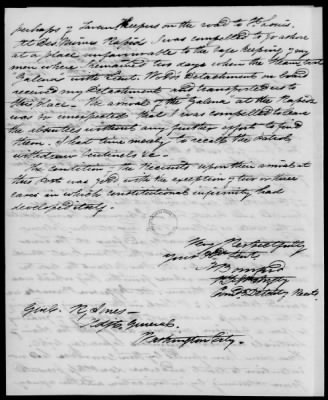 perhaps of Tavern Keepers on the road to St. Louis.
At Des Moines Rapids I was compelled to go ashore
at a place unfavourable to the safe keeping of my
men where I remained two days when the Steam boat
Galena with Lieut. Detachment on board
received my Detachment and transported us to
this place. The arrival of the Galena at the Rapids
was so unexpected that I was compelled to leave
the absentees without any further effort to find
them. I had time merely to recall the patrols
withdraw Sentinels &c.
The condition of the Recruits upon their arrival at
this Post was good with the exception of two or three
cases in which constitutional infirmity had
developed itself.
Very Respectfully
your Obt Servt.
Genl. R. Jones
Adjt. General.
Washington City.